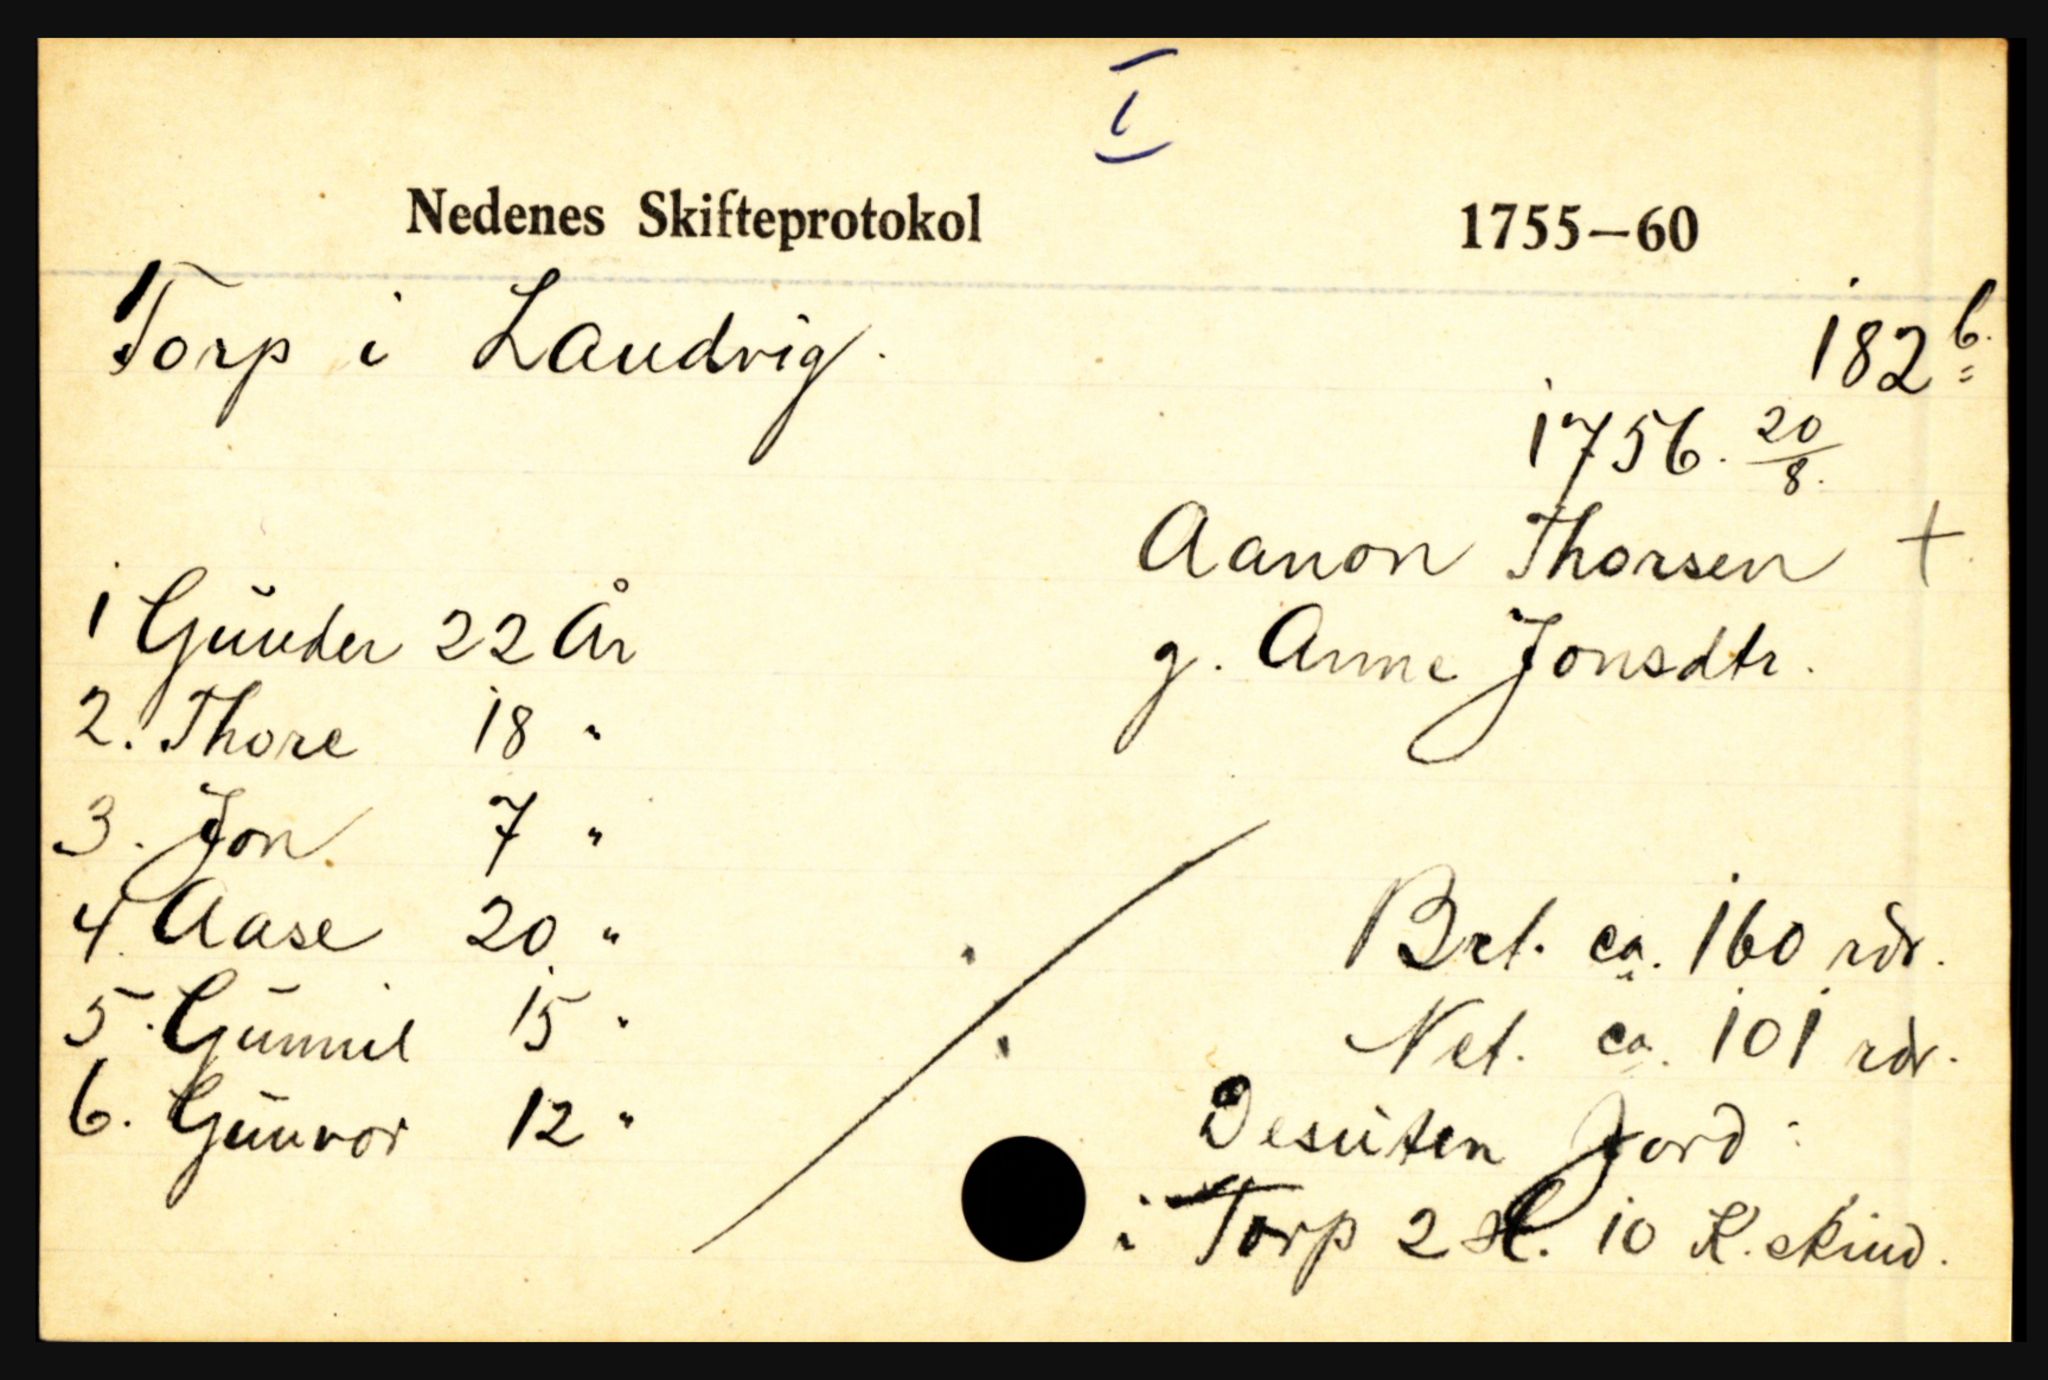 I
Nedenes Skifteprotokol 1755—60
Torp i Landvig. 182 b.
1756. 20/8.
Aanon Thorsen +
g. Anne Jonsdtr.
1 Gunder 22 År
2. Thore 18 "
3. Jon 7 "
4. Aase 20 "
5. Gunnil 15 "
6. Gunvor 12 "
Brt. ca. 160 rdr.
Net. ca. 101 rdr.
Desuten Jord:
i Torp 2 H. 10 K. skind.